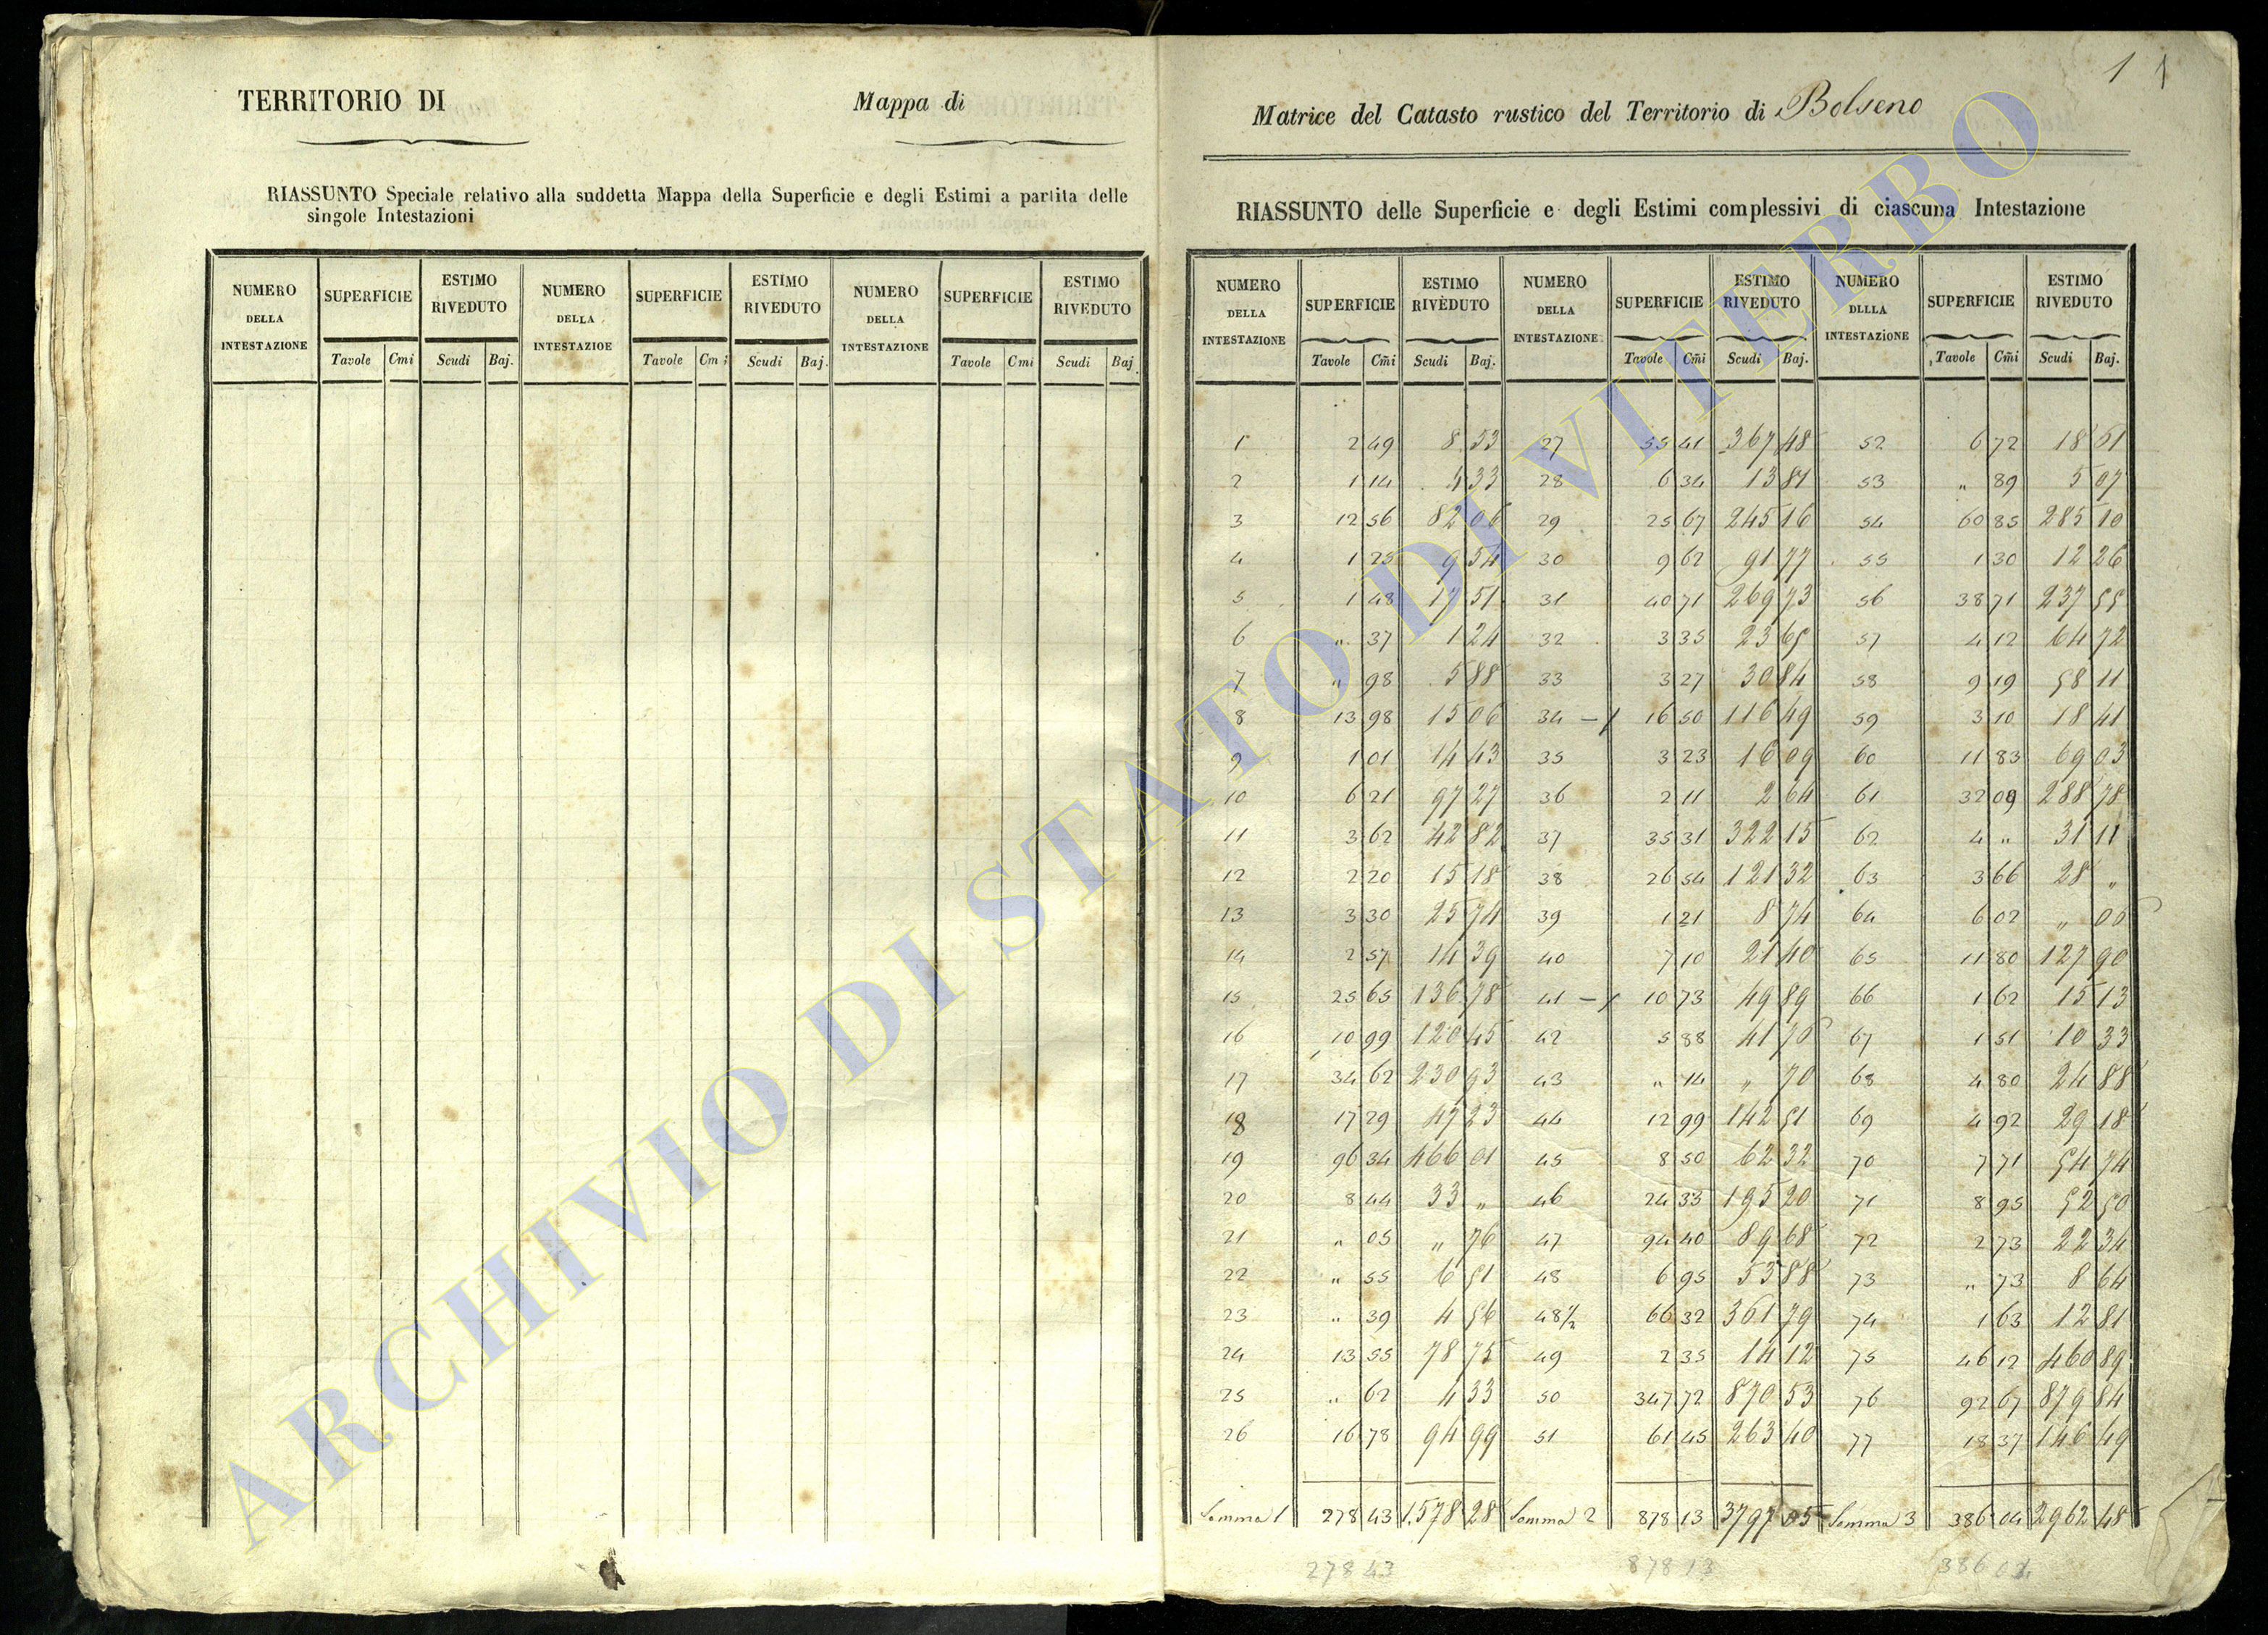 TERRITORIO DI Mappa di
RIASSUNTO Speciale relativo alla suddetta Mappa della Superficie e degli Estimi a partita delle
singole Intestazioni
NUMERO DELLA INTESTAZIONE SUPERFICIE ESTIMO RIVEDUTO NUMERO DELLA INTESTAZIOE SUPERFICIE ESTIMO RIVEDUTO NUMERO DELLA INTESTAZIONE SUPERFICIE ESTIMO RIVEDUTO
Tavole Cmi Scudi Baj. Tavole Cmi Scudi Baj. Tavole Cmi Scudi Baj
1 1
Matrice del Catasto rustico del Territorio di Bolseno
RIASSUNTO delle Superficie e degli Estimi complessivi di ciascuna Intestazione
NUMERO DELLA INTESTAZIONE SUPERFICIE ESTIMO RIVEDUTO NUMERO DELLA INTESTAZIONE SUPERFICIE ESTIMO RIVEDUTO NUMERO DLLLA INTESTAZIONE SUPERFICIE ESTIMO RIVEDUTO
Tavole Cmi Scudi Baj. Tavole Cmi Scudi Baj. Tavole Cmi Scudi Baj.
1 2 49 8 53 27 55 41 367 48 52 6 72 18 61
2 1 14 4 33 28 6 34 13 81 53 " 89 5 07
3 12 56 82 06 29 25 67 245 16 54 60 85 285 10
4 1 25 9 54 30 9 62 91 77 55 1 30 12 26
5 1 48 17 51 31 40 71 269 73 56 38 71 237 55
6 " 37 1 24 32 3 35 23 65 57 4 12 64 72
7 " 98 5 88 33 3 27 30 84 58 9 19 58 11
8 13 98 15 06 34 16 50 116 49 59 3 10 18 41
9 1 01 14 43 35 3 23 16 09 60 11 83 69 03
10 6 21 97 27 36 2 11 2 64 61 32 09 288 78
11 3 62 42 82 37 35 31 322 15 62 4 " 31 11
12 2 20 15 18 38 26 54 121 32 63 3 66 28 "
13 3 30 25 74 39 1 21 8 74 64 6 02 "
14 2 57 14 39 40 7 10 21 40 65 11 80 127 90
15 25 65 136 78 41 10 73 49 89 66 1 62 15 13
16 10 99 120 45 42 5 88 41 70 67 1 51 10 33
17 34 62 230 93 43 " 14 " 70 68 4 80 24 88
18 17 29 47 23 44 12 99 142 51 69 4 92 29 18
19 96 34 466 01 45 8 50 62 32 70 7 71 54 74
20 8 44 33 " 46 24 33 195 20 71 8 95 52 50
21 " 05 " 76 47 94 40 89 68 72 2 73 22 34
22 " 55 6 51 48 6 95 53 88 73 " 73 8 64
23 " 39 4 56 48½ 66 32 361 79 74 1 63 12 81
24 13 55 78 75 49 2 35 14 12 75 46 12 460 89
25 " 62 4 33 50 347 72 870 53 76 92 67 879 84
26 16 78 94 99 51 61 45 263 40 77 18 37 146 49
Somma 1 278 43 1578 28 Somma 2 878 13 3797 05 Somma 3 386 04 2962 48
278 43 878 13 386 04
ARCHIVIO DI STATO DI VITERBO